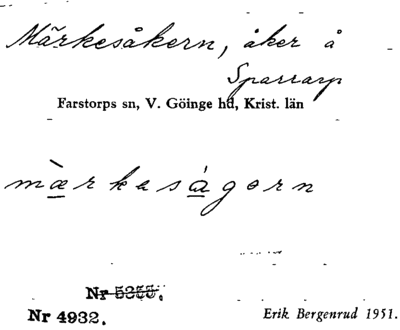 Märkesåkern, åker å
Sparrarp
Farstorps sn, V. Göinge hd, Krist. län
mæ̀rkeságorn
Nr 4932.
Erik Bergenrud 1951.